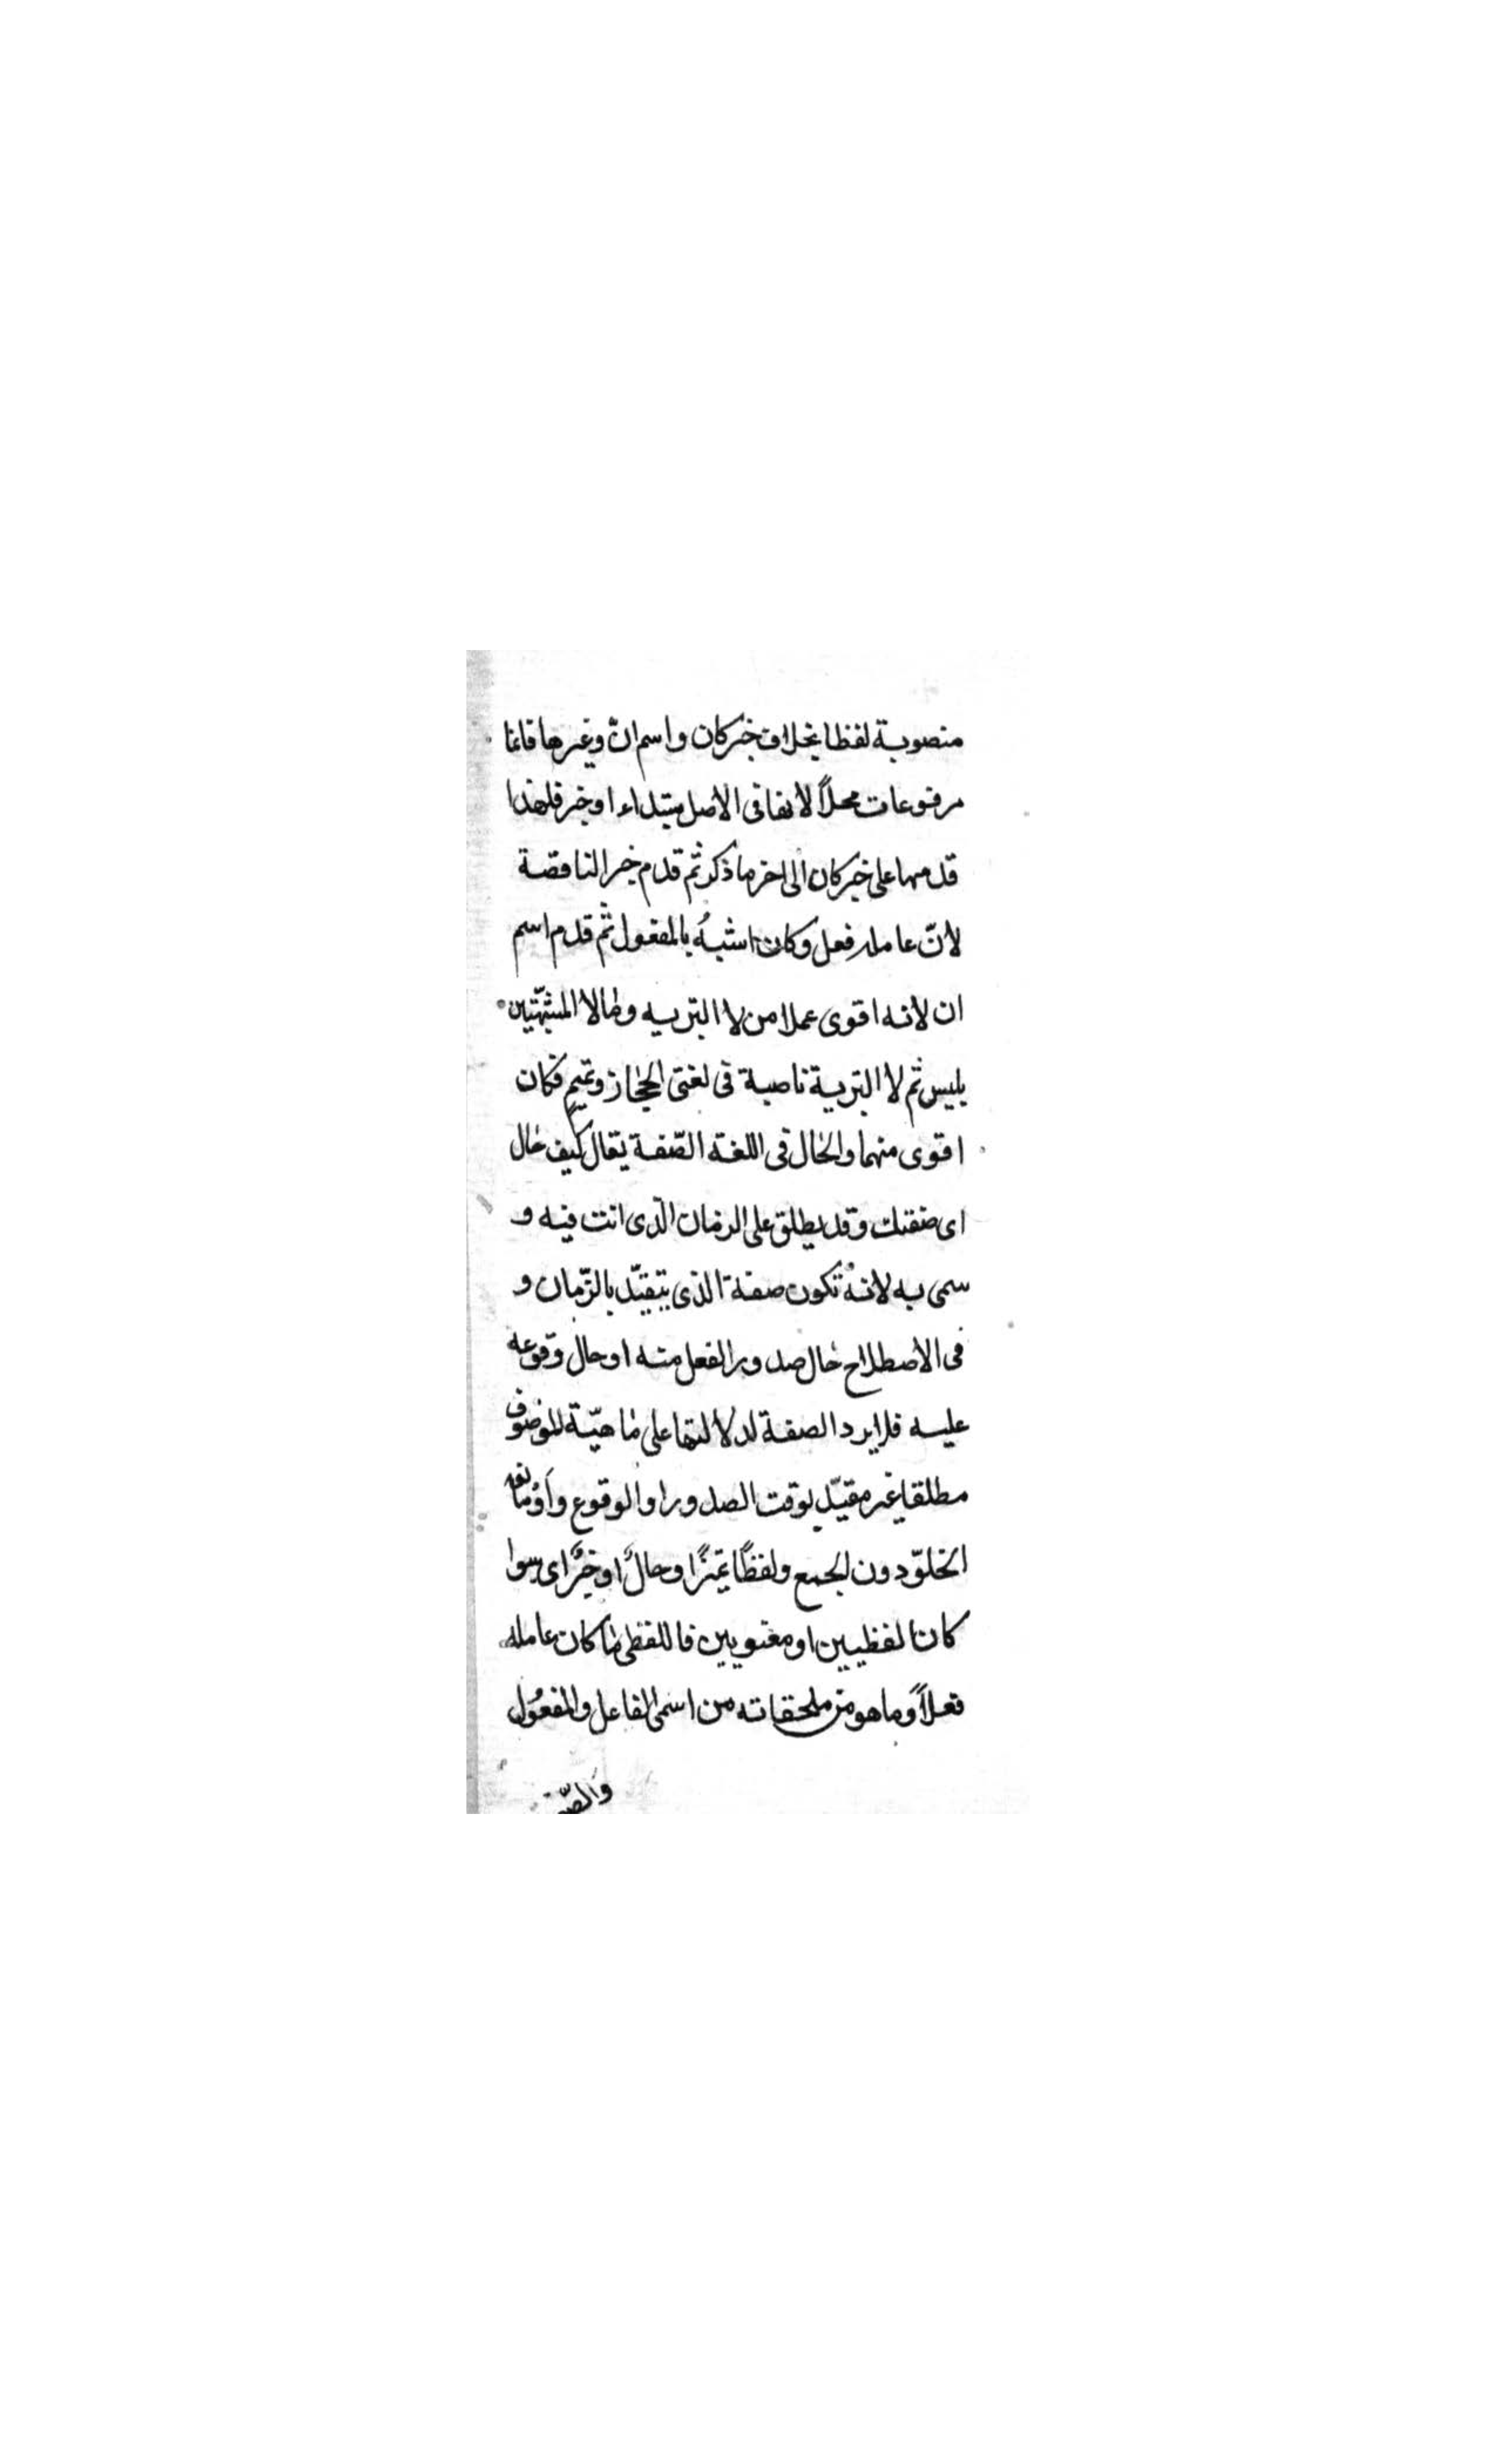 منصوبة لفظا بخلاف خبر كان واسم انّ وغيرها فانها
مرفوعات محلاً لانها فى الاصل مبتداء او خبر فلهذا
قدمها على خبر كان الى اخر ما ذكر ثم قدم خبر الناقصة
لانّ عامله فعل وكان اشبهُ بالمفعول ثم قدم اسم
ان لانه اقوى عملا من لا التبريه وما لا المشبّهتين
بليس ثم لا التبرية ناصبة فى لغتى الحجاز وتميم فكان
اقوى منهما والحال فى اللغة الصّفة يقال كيف حال
اى صفتك وقد يطلق على الزمان الّذى انت فيه و
سمى به لانهُ تكون صفة الذى يتقيّد بالزّمان و
فى الاصطلاح حال صدور الفعل منه او حال وقوعه
عليه فلا يرد الصفة لدلالتها على ماهيّة الموصوف
مطلقا غير مقيّد بوقت الصدور او الوقوع وأو مانعه
الخلوّ دون الجمع ولفظًا تميزًا وحالاً او خبرًا اى سوا
كانا لفظيين او معنويين فاللفظى ما كان عامله
فعلاً وما هو من ملحقاته من اسمى الفاعل والمفعُول
والصّفـ